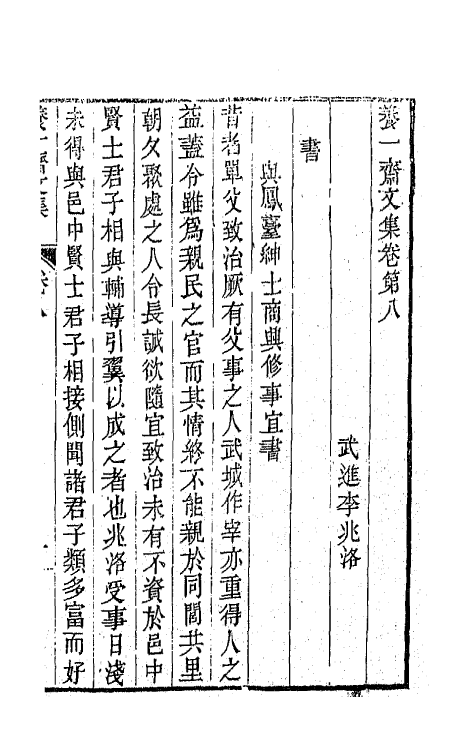 養一齋文集卷第八
武進李兆洛
書
與鳳臺紳士商興修事宜書
昔者單父致治厥有父事之人武城作宰亦重得人之
益蓋令雖爲親民之官而其情終不能親於同閭共里
朝夕聚處之人令長誠欲隨宜致治未有不資於邑中
賢士君子相與輔導引翼以成之者也兆洛受事日淺
未得與邑中賢士君子相接側聞諸君子類多富而好
養一齋文集 卷八 一